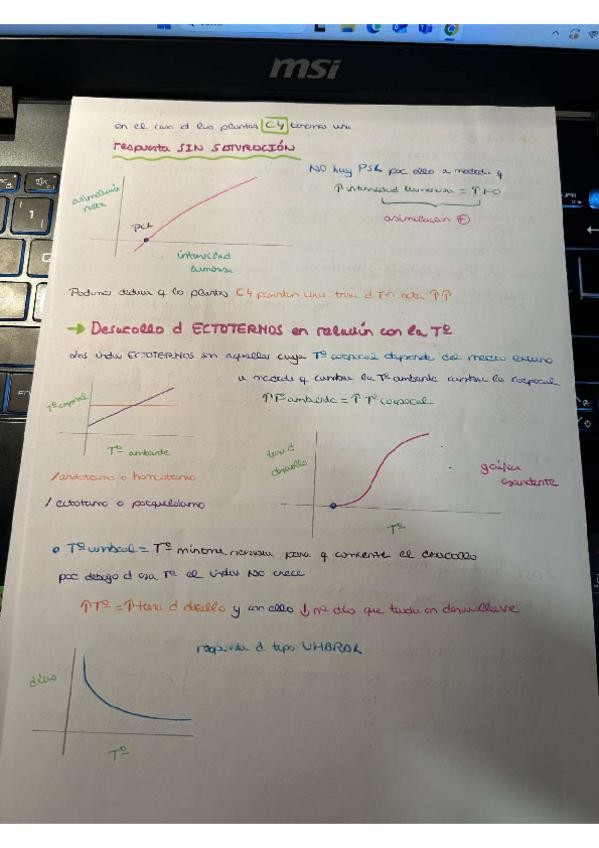 msi
en el caso d las plantas C4 tenemos una
respuesta SIN SATURACIÓN
NO hay PSL por ello a medida q
↑ intensidad luminosa = ↑ FO
asimilación
asimilación neta
PCL
intensidad
luminosa
Podemos deducir q las plantas C4 permiten una tasa d FO neta ↑↑
→ Desarrollo d ECTOTERMOS en relación con la Tº
Los indiv ECTOTERMOS son aquellos cuya Tº corporal depende del medio externo
a medida q cambia la Tº ambiente cambia la corporal
↑ Tº ambiente = ↑ Tº corporal
Tº corporal
Tº ambiente
/ endotermo o homeotermo
/ ectotermo o poiquilotermo
tasa d
desarrollo
gráfica
ascendente
Tº
o Tº umbral = Tº mínima necesaria para q comience el desarrollo
por debajo d esa Tº el indiv NO crece
↑ Tº = ↑ tasa d dsrllo y con ello ↓ nº días que tarda en desarrollarse
respuesta d tipo UMBRAL
días
Tº